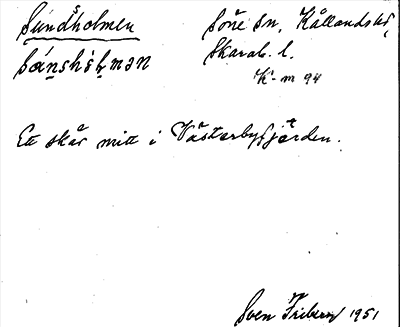 Sundholmen Söne sn, Kållands hd,
Skarab. l.
K-m 94
Ett skär mitt i Västerbyfjärden.
Sven Friberg 1951